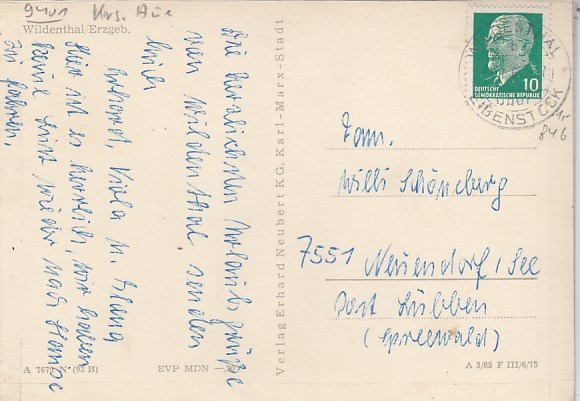 9401 Krs. Aue
Wildenthal/Erzgeb.
Die herzlichsten Urlaubsgrüße
von Wildenthal senden
Euch
Erhard, Viola u.
Hier ist es herrlich, wir haben
keine Lust wieder nach Hause
zu fahren.
A 7679 N (93 B)
EVP MDN
Verlag Erhard Neubert KG. Karl-Marx-Stadt
WILDENTHAL
über
EIBENSTOCK
10
DEUTSCHE
DEMOKRATISCHE REPUBLIK
846
Fam.
Willi Schöneberg
7551 Neuendorf/See
Post Lübben
(Spreewald)
A 3/65 F III/6/75